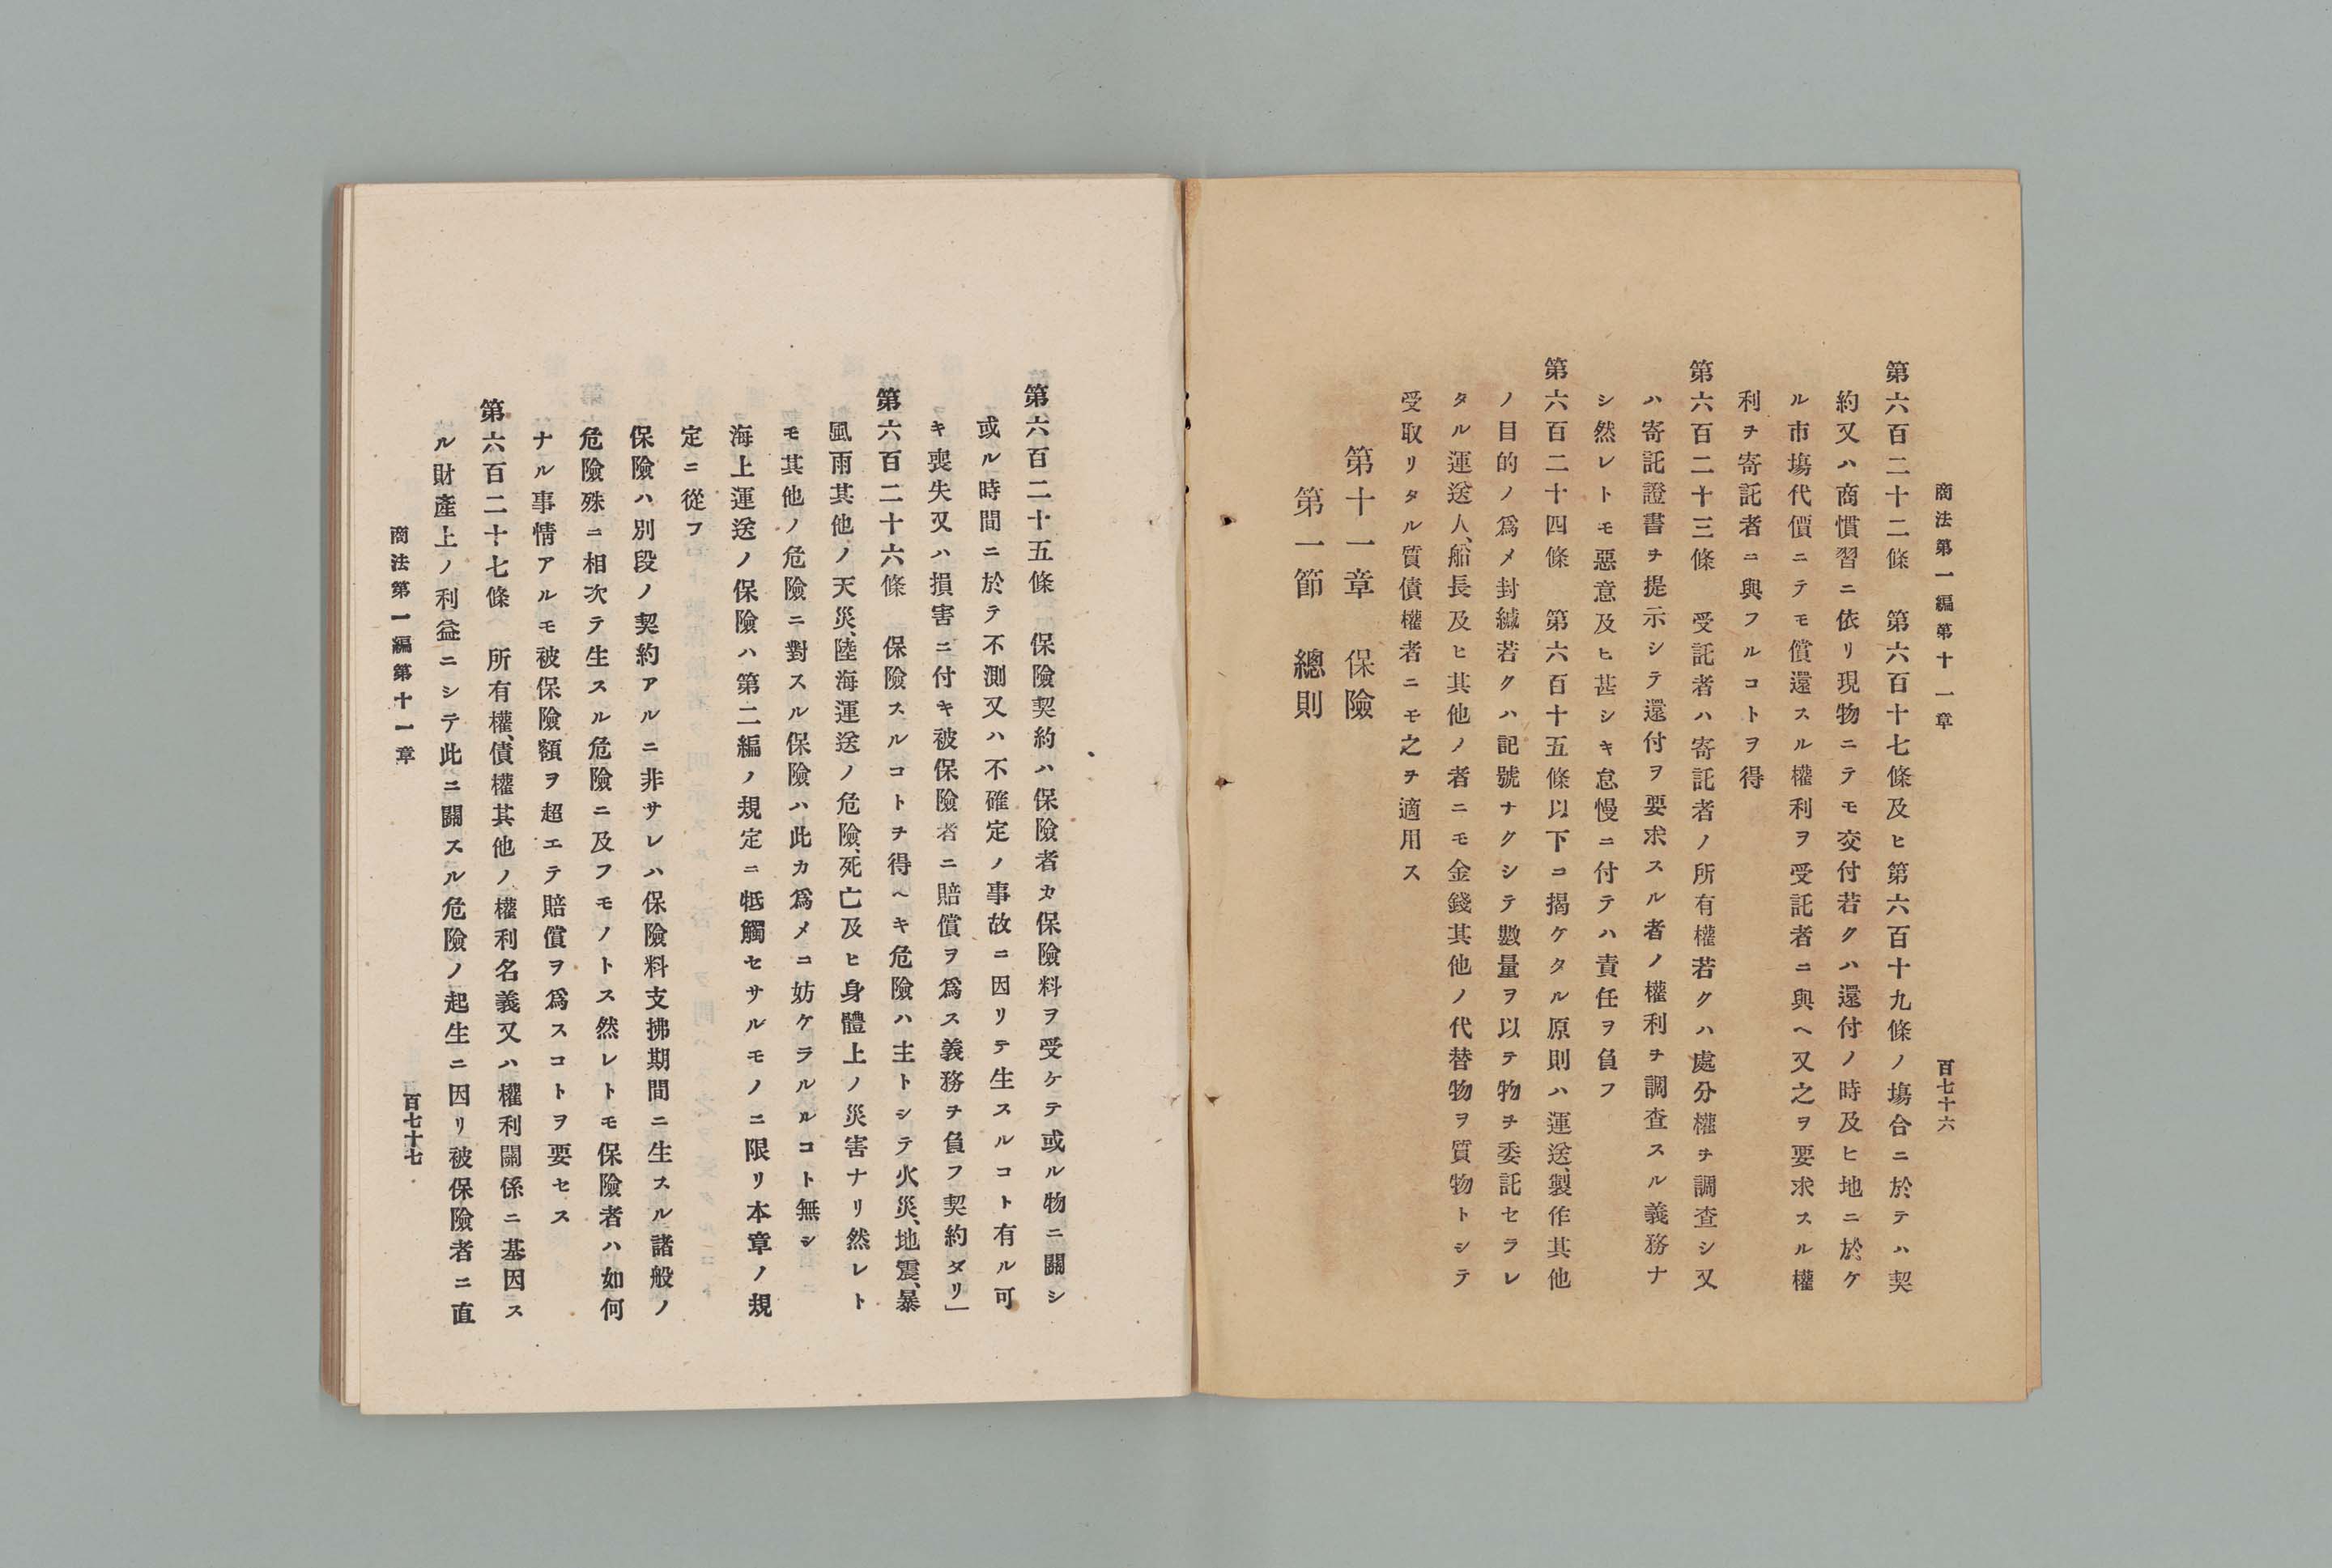 商法第一編第十一章
百七十六
第六百二十二條　第六百十七條及ヒ第六百十九條ノ塲合ニ於テハ契
約又ハ商慣習ニ依リ現物ニテモ交付若クハ還付ノ時及ヒ地ニ於ケ
ル市塲代價ニテモ償還スル權利ヲ受託者ニ與ヘ又之ヲ要求スル權
利ヲ寄託者ニ與フルコトヲ得
第六百二十三條　受託者ハ寄託者ノ所有權若クハ處分權ヲ調査シ又
ハ寄託證書ヲ提示シテ還付ヲ要求スル者ノ權利ヲ調査スル義務ナ
シ然レトモ惡意及ヒ甚シキ怠慢ニ付テハ責任ヲ負フ
第六百二十四條　第六百十五條以下ニ揭ケタル原則ハ運送、製作其他
ノ目的ノ爲メ封緘若クハ記號ナクシテ數量ヲ以テ物ヲ委託セラレ
タル運送人、船長及ヒ其他ノ者ニモ金錢其他ノ代替物ヲ質物トシテ
受取リタル質債權者ニモ之ヲ適用ス
第十一章　保險
第一節　總則
第六百二十五條　保險契約ハ保險者カ保險料ヲ受ケテ或ル物ニ關シ
或ル時間ニ於テ不測又ハ不確定ノ事故ニ因リテ生スルコト有ル可
キ喪失又ハ損害ニ付キ被保險者ニ賠償ヲ爲ス義務ヲ負フ契約タリ」
第六百二十六條　保險スルコトヲ得ヘキ危險ハ主トシテ火災、地震、暴
風雨其他ノ天災、陸海運送ノ危險、死亡及ヒ身體上ノ災害ナリ然レト
モ其他ノ危險ニ對スル保險ハ此カ爲メニ妨ケラルルコト無シ
海上運送ノ保險ハ第二編ノ規定ニ牴觸セサルモノニ限リ本章ノ規
定ニ從フ
保險ハ別段ノ契約アルニ非サレハ保險料支拂期間ニ生スル諸般ノ
危險殊ニ相次テ生スル危險ニ及フモノトス然レトモ保險者ハ如何
ナル事情アルモ被保險額ヲ超エテ賠償ヲ爲スコトヲ要セス
第六百二十七條　所有權、債權其他ノ權利名義又ハ權利關係ニ基因ス
ル財產上ノ利益ニシテ此ニ關スル危險ノ起生ニ因リ被保險者ニ直
商法第一編第十一章
百七十七